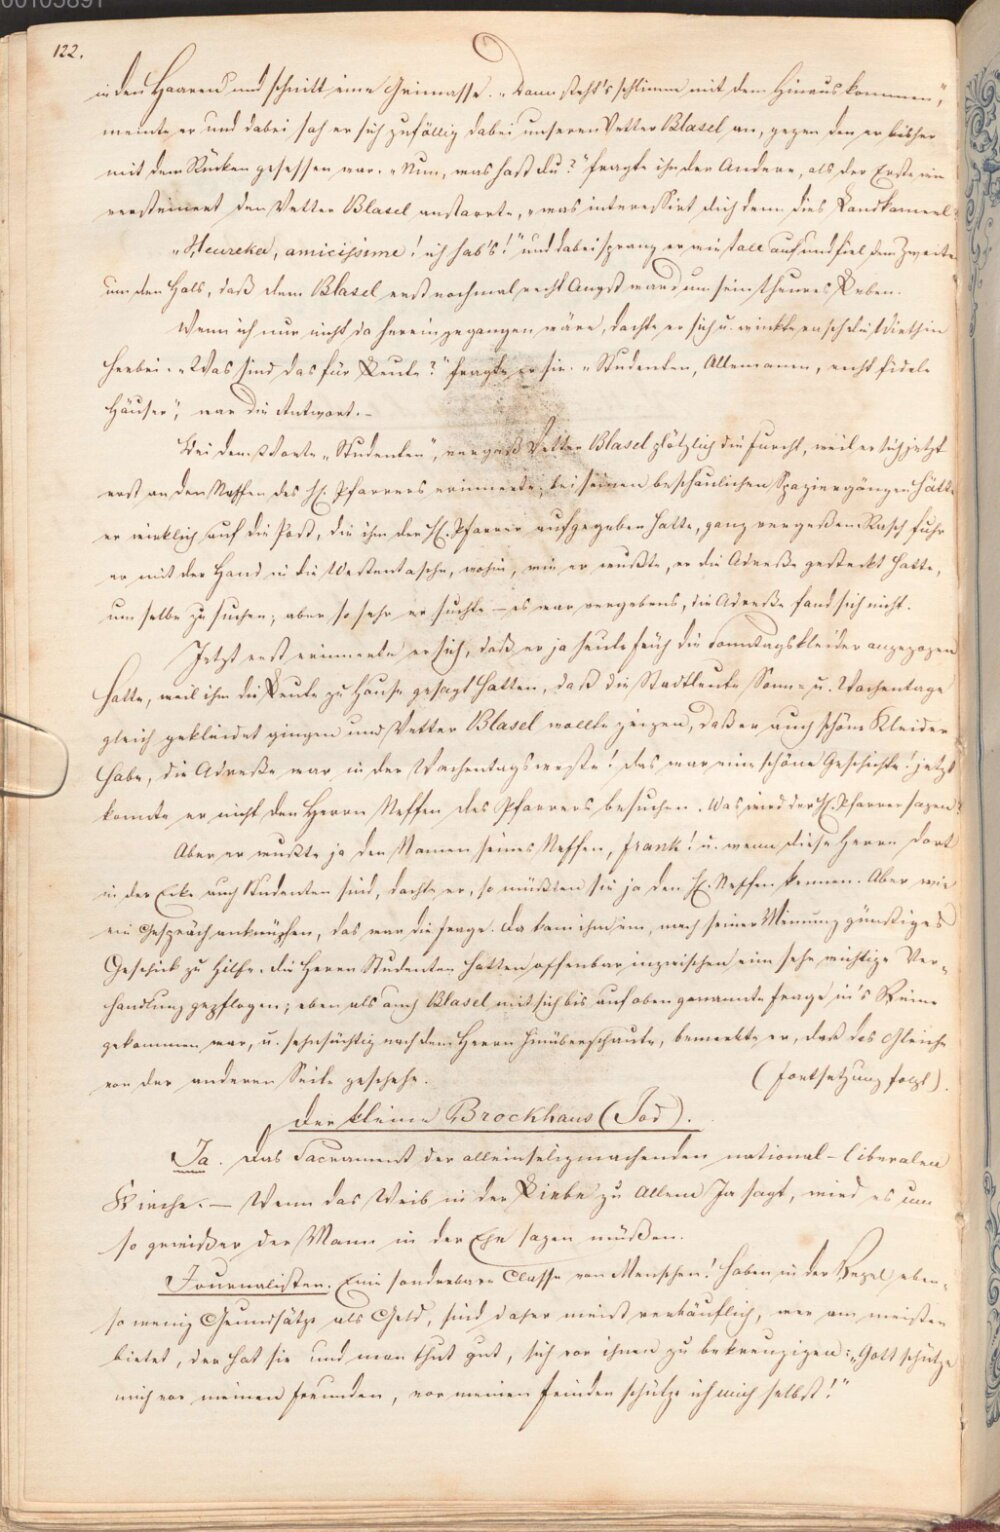 00103891
122.
in den Haaren und schnitt eine Grimasse. „Dann steht's schlimm mit dem Hinauskommen",
meinte er und dabei sah er sich zufällig dabei unseren Vetter Blasel an, gegen den er bisher
mit dem Rücken gesessen war. „Nun, was hast du?" fragte ihn der Andere, als der Erste wie
versteinert den Vetter Blasel anstarrte, „was interessirt dich denn dies Landkameel?
„Heureka, amicissime! ich hab's!" und dabei sprang er wie toll auf und fiel dem Zweiten
um den Hals, daß dem Blasel erst nochmal recht Angst ward um sein theures Leben.
Wenn ich nur nicht da hereingegangen wäre, dachte er sich u. winkte
herbei. „Was sind das für Leute?" fragte er sie. „Studenten, Allemanen, recht fidele
Häuser", war die Antwort. –
Bei dem Worte „Studenten", vergaß Vetter Blasel plötzlich die Furcht, weil er sich jetzt
erst an den Neffen des H. Pfarrers erinnerte; bei seinen beschaulichen Spaziergängen hätte
er wirklich auf die Post, die ihm der H. Pfarrer aufgegeben hatte, ganz vergeßen. Rasch fuhr
er mit der Hand in die Westentasche, wohin, wie er wußte, er die Adreße gesteckt hatte,
um selbe zu suchen; aber so sehr er suchte – es war vergebens, die Adreße fand sich nicht.
Jetzt erst erinnerte er sich, daß er ja heute früh die Sonntagskleider angezogen
hatte, weil ihm die Leute zu Hause gesagt hatten, daß die Stadtleute Sonn- u. Wochentage
gleich gekleidet gingen und Vetter Blasel wollte zeigen, daß er auch schöne Kleider
habe, die Adreße war in der Wochentagsweste! Das war eine schöne Geschichte! jetzt
konnte er nicht den Herrn Neffen des Pfarrers besuchen. Was wird der H. Pfarrer sagen?
Aber er wußte ja den Namen seines Neffen, Frank! u. wenn diese Herrn dort
in der Ecke auch Studenten sind, dachte er, so müßten sie ja den H. Neffen kennen. Aber wie
ein Gespräch anknüpfen, das war die Frage. Da kam ihm ein, nach seiner Meinung günstiges
Geschick zu Hilfe. Die Herrn Studenten hatten offenbar inzwischen eine sehr wichtige Ver-
handlung gepflogen; eben als auch Blasel mit sich bis auf oben genannte Frage in's Reine
gekommen war, u. sehnsüchtig nach dem Herrn hinüberschaute, bemerkte er, daß das Gleiche
von der anderen Seite geschehe.
(Fortsetzung folgt).
Der kleine Brockhaus (Jod).
Ja. Das Sacrament der alleinseligmachenden national-liberalen
Kirche. – Wenn das Weib in der Liebe zu Allem Ja sagt, wird es um
so gewißer der Mann in der Ehe sagen müßen.
Journalisten. Eine sonderbare Classe von Menschen! Haben in der Regel eben-
so wenig Grundsätze als Geld, sind daher meist verkäuflich, wer am meisten
bietet, der hat sie und man thut gut, sich vor ihnen zu bekreuzigen: „Gott schütze
mich vor meinen Freunden, vor meinen Feinden schütze ich mich selbst!"